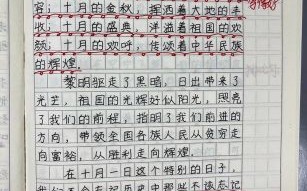 收；十月的金秋，挥洒着大地的丰
收；十月的盛典，洋溢着祖国的欢
颜；十月的欢呼，传颂着中华民族
的辉煌。
黎明驱走了黑暗，日出带来了
光芒，祖国的光辉好似阳光，照亮
了我们的前程，指明了我们前进的
方向，带领全国各族人民从贫穷走
向富裕，从胜利走向辉煌。
在十月一日这个特别的日子，
我们不会忘记历史中那些不该忘记